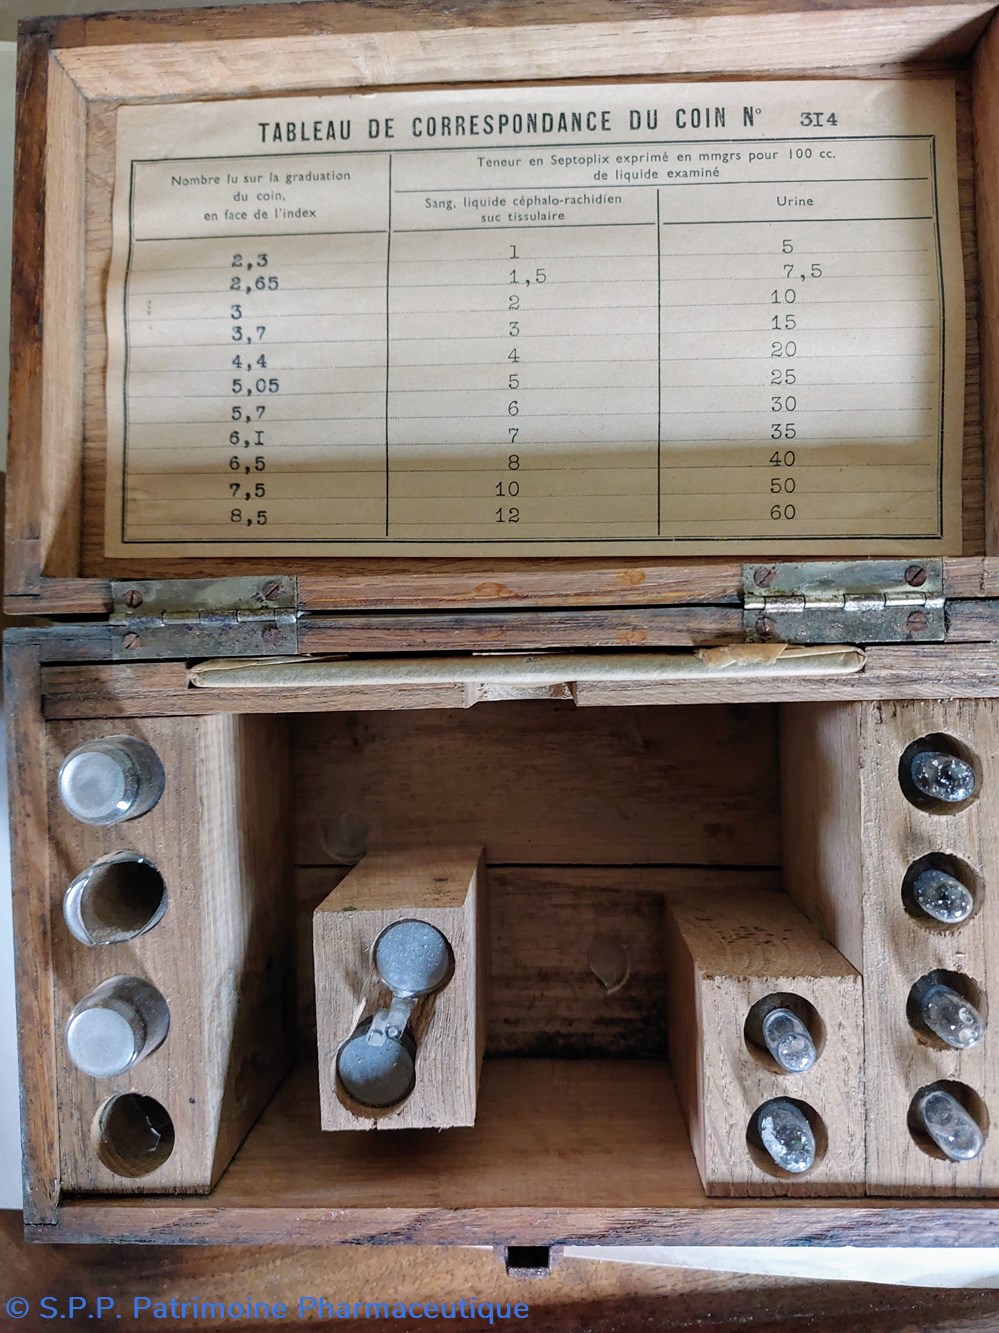 TABLEAU DE CORRESPONDANCE DU COIN N° 3I4
Nombre lu sur la graduation
du coin,
en face de l'index
Teneur en Septoplix exprimé en mmgrs pour 100 cc.
de liquide examiné
Sang, liquide céphalo-rachidien
suc tissulaire
Urine
2,3 1 5
2,65 1,5 7,5
3 2 10
3,7 3 15
4,4 4 20
5,05 5 25
5,7 6 30
6,I 7 35
6,5 8 40
7,5 10 50
8,5 12 60
© S.P.P. Patrimoine Pharmaceutique